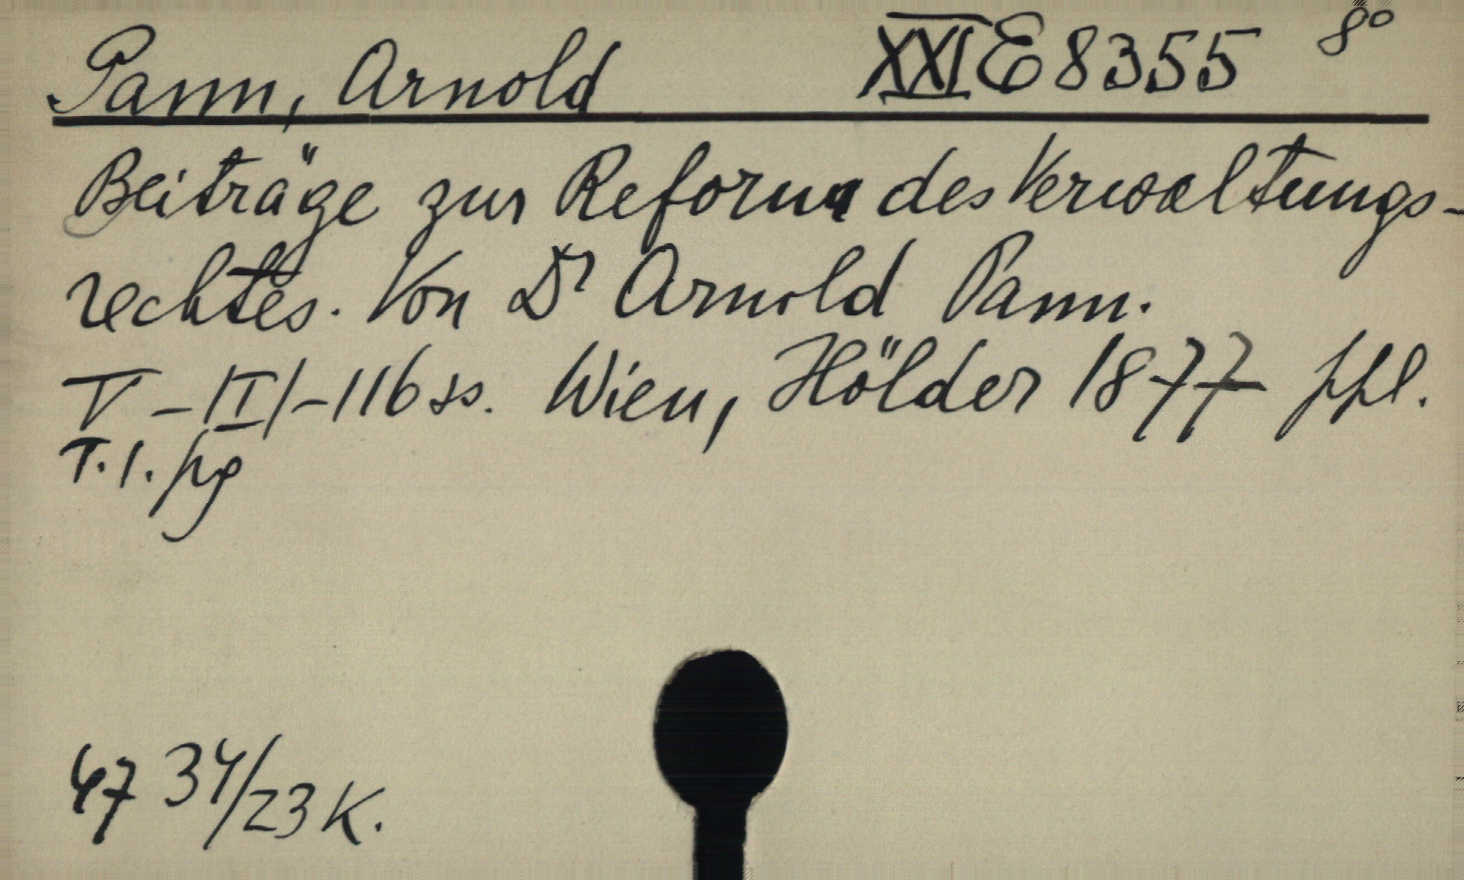 Pann, Arnold XXI E 8355 8°
Beiträge zur Reform des Verwaltungs-
rechtes. Von Dr Arnold Pann.
V - |II| - 116 ss. Wien, Hölder 1877 ppl.
T.1. pg
47 34/23 K.